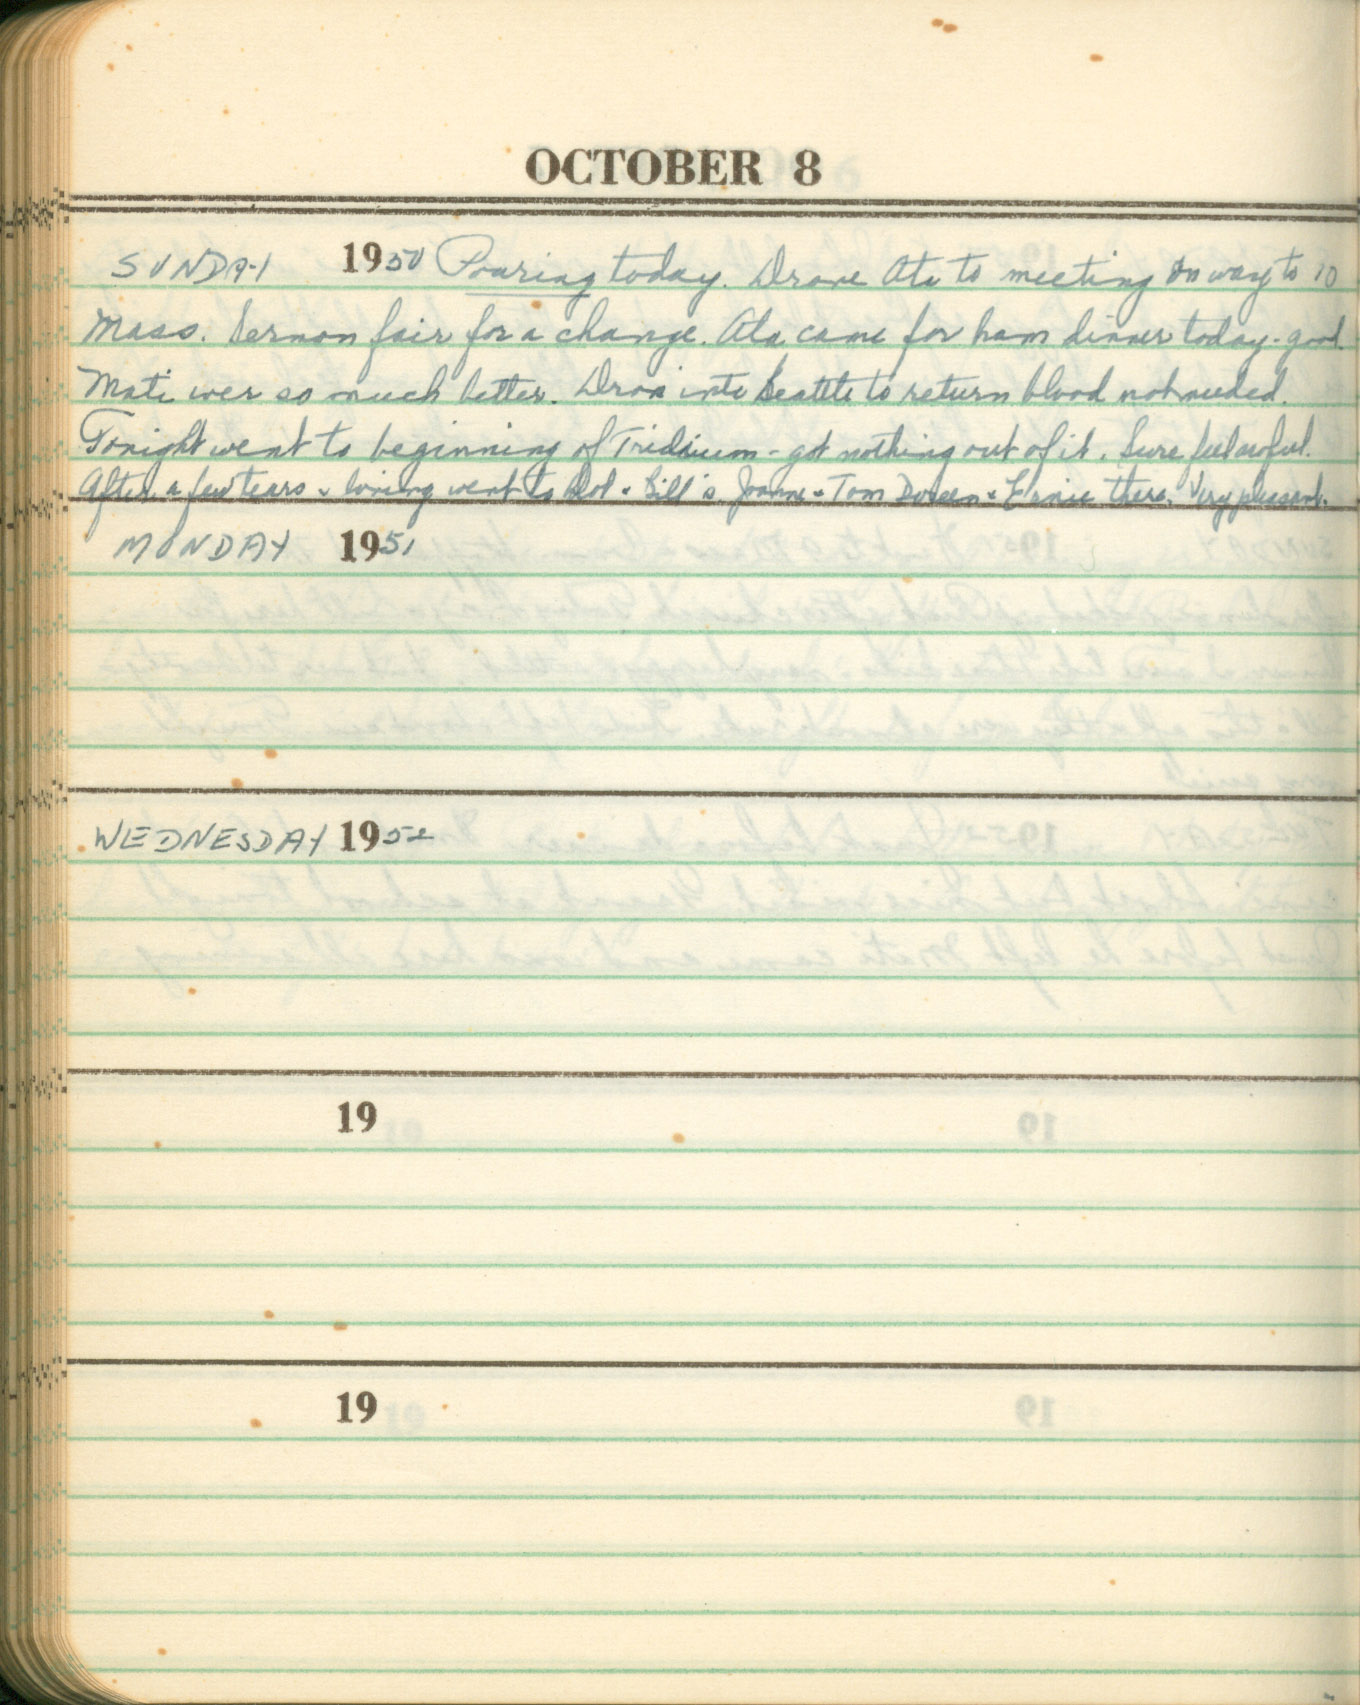 OCTOBER 8
SUNDAY 1950 Pouring today. Drove Ata to meeting on way to 10
Mass. Sermon fair for a change. Ata came for ham dinner today - good.
Mati over so much better. Drove into Seattle to return blood not needed.
Tonight went to beginning of Triduum - got nothing out of it. Sure feel awful.
After a few tears & loving went to Dot & Bill's. Joanne & Tom Doreen & Ernie there. Very pleasant.
MONDAY 1951
WEDNESDAY 1952
19
19